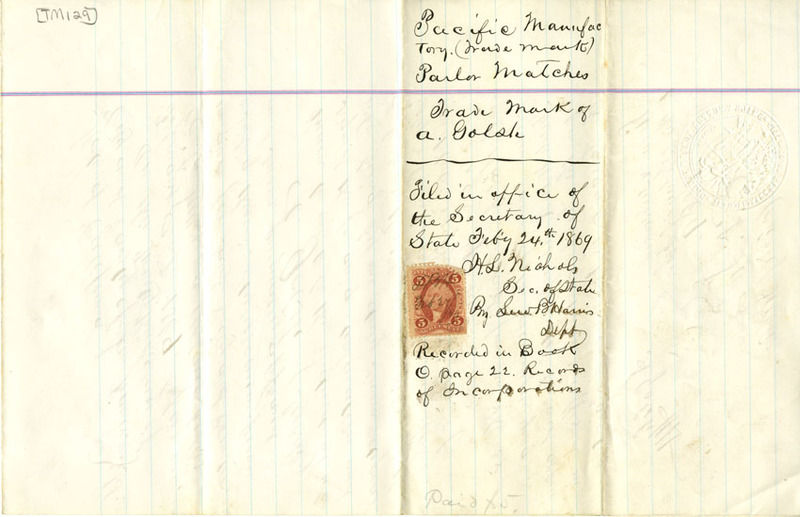 [TM129]
Pacific Manufac
tory. (Trade mark)
Parlor Matches
Trade Mark of
A. Goldk
Filed in office of
the Secretary of
State Feby 24.th 1869
H. L. Nichols
Sec. of State
By Lew B Harris
Dept
5 5
5 5
Recorded in Book
O. page 22. Records
of Incorporations
Paid $5.